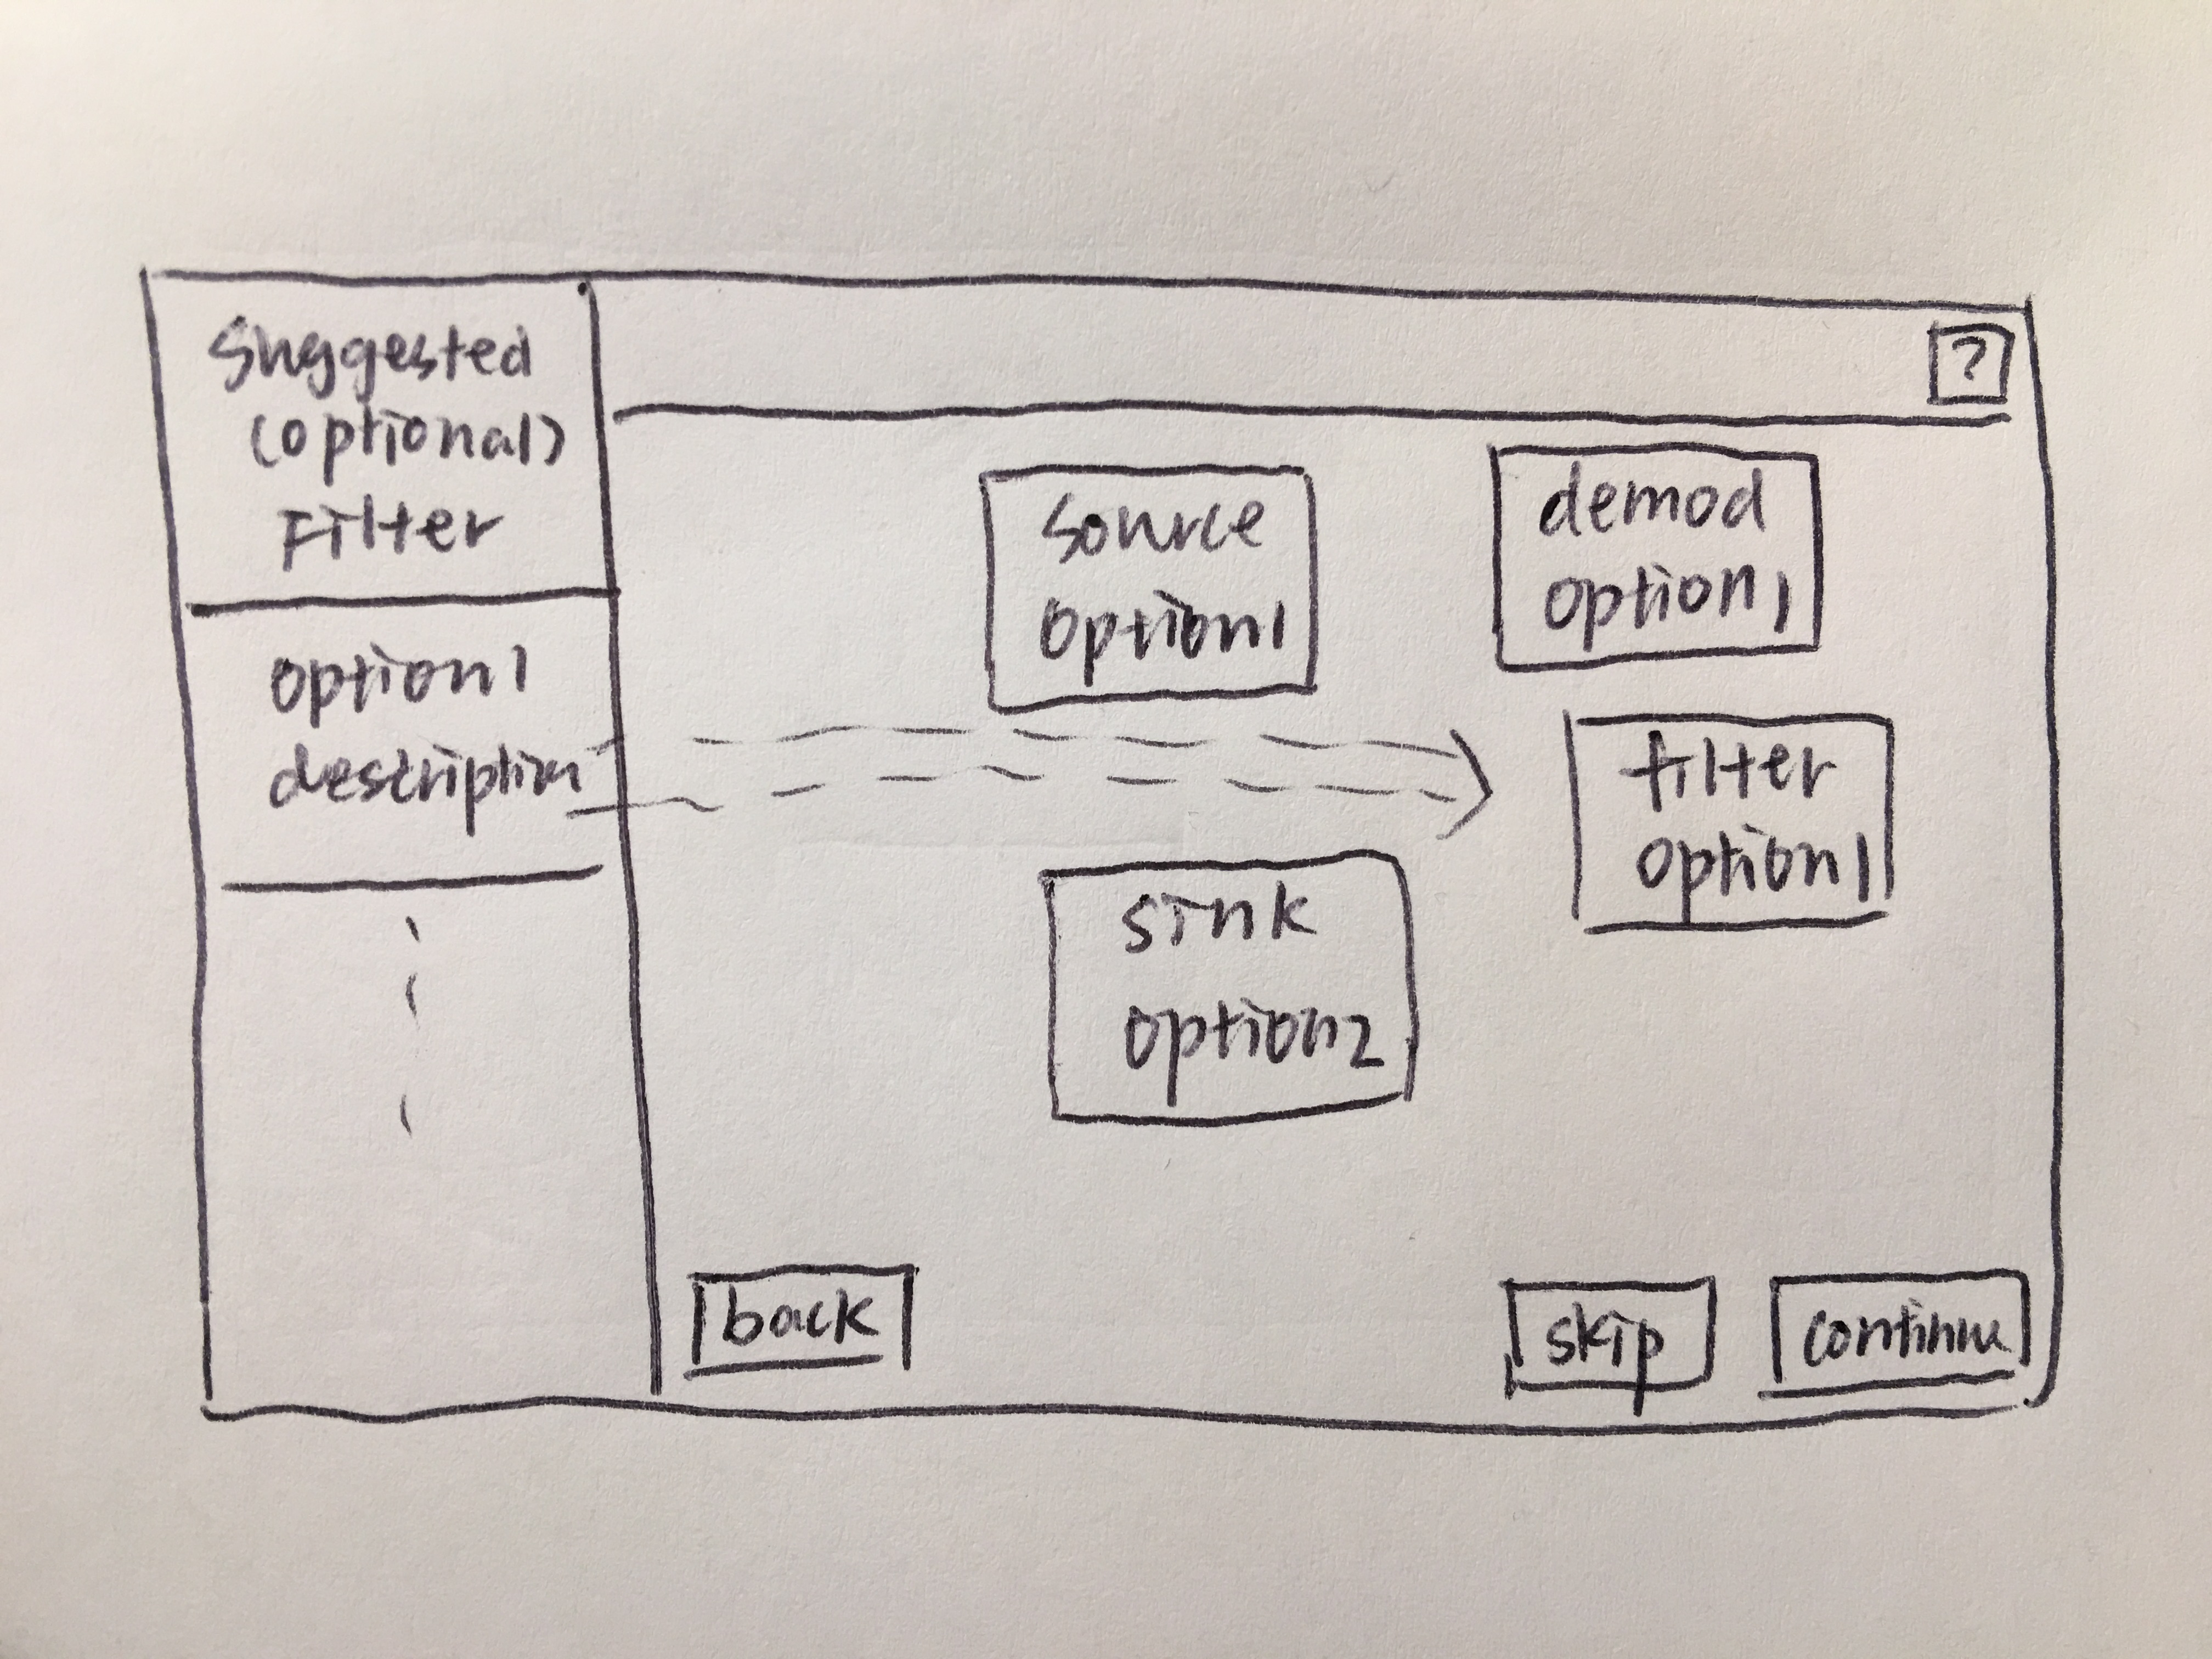 Suggested
(optional)
Filter
option1
description
?
source
option1
demod
option1
filter
option1
sink
option2
back
skip
continue